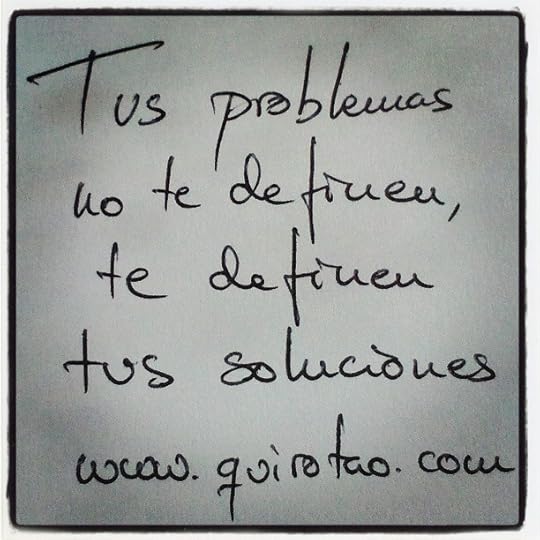 Tus problemas
no te definen,
te definen
tus soluciones
www.quirotao.com